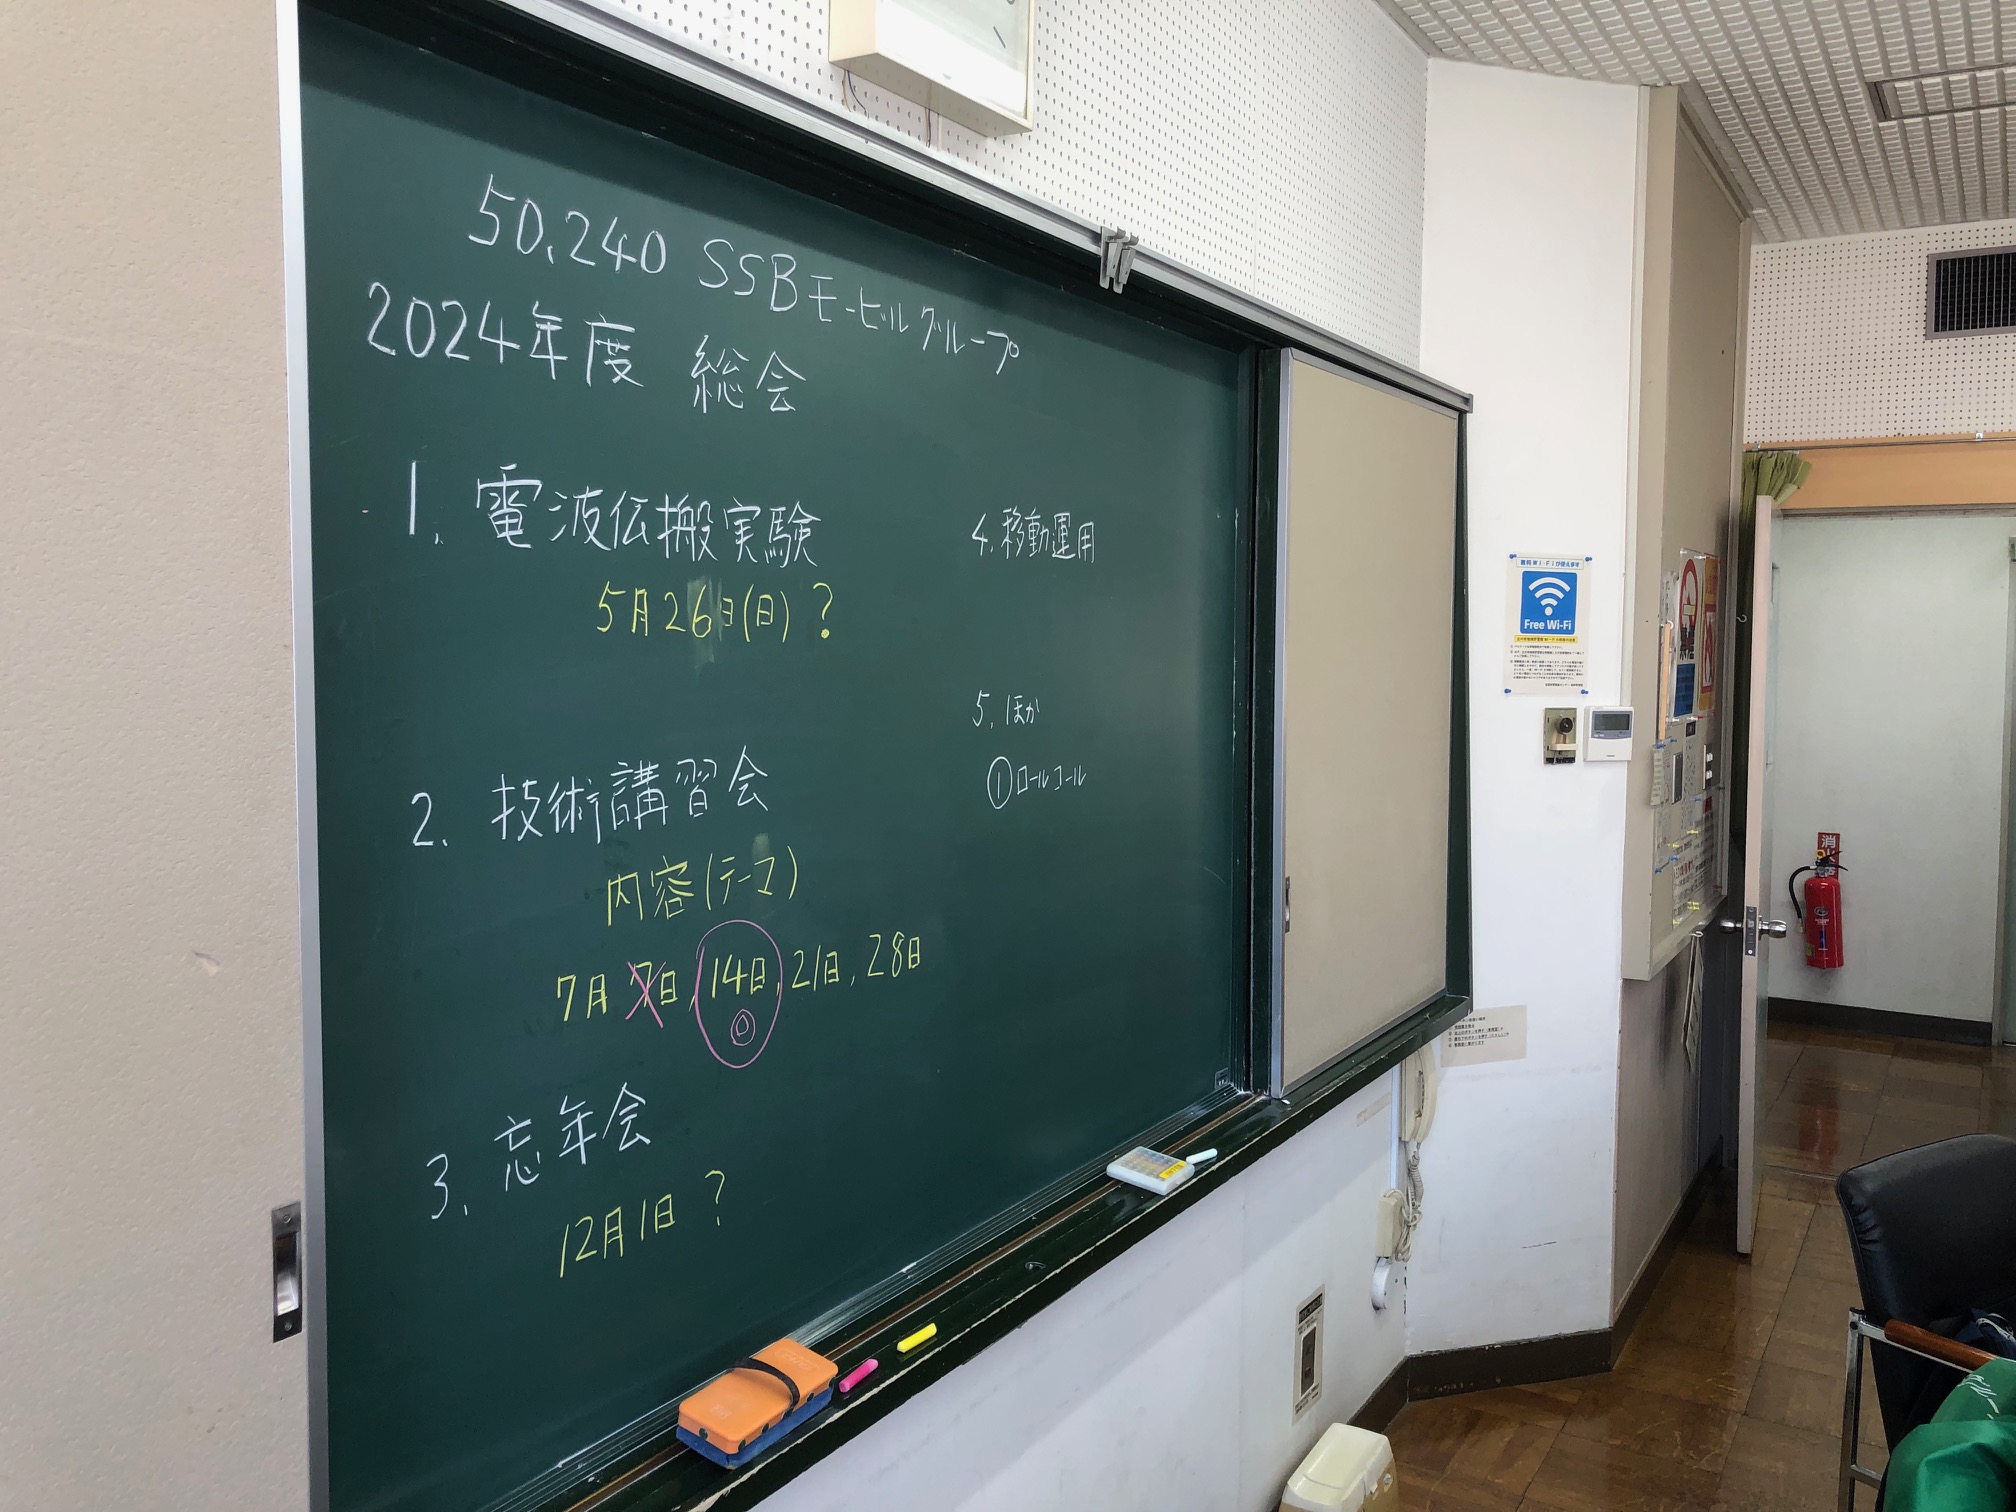 50.240 SSBモービルグループ
2024年度 総会
1. 電波伝搬実験
5月26日(日)?
2. 技術講習会
内容(テーマ)
7月7日,14日,21日,28日
◎
3. 忘年会
12月1日?
4. 移動運用
5. ほか
①ロールコール
Free Wi-Fi
消火